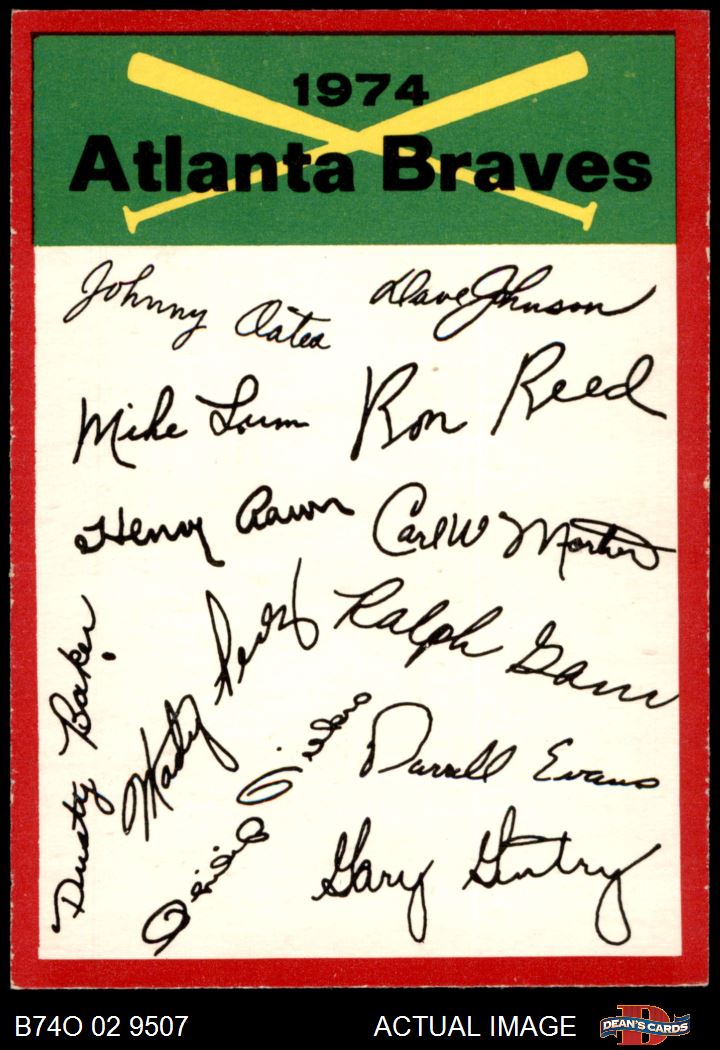 1974
Atlanta Braves
Johnny Oates
Dave Johnson
Mike Lum
Ron Reed
Henry Aaron
Carl W Morton
Dusty Baker
Marty Perez
Ralph Garr
Darrell Evans
Gary Gentry
B74O 02 9507
ACTUAL IMAGE
DEAN'S CARDS